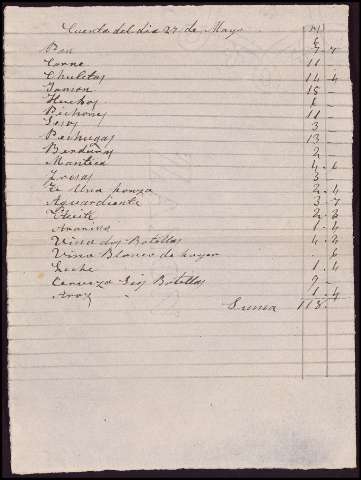 Cuenta del dia 27 de Mayo
Pan 7 7
Carne 11
Chuletas 14 4
Jamon 15
Huebos
Pichones 11
Sesos 3
Pechugas 13
Berduras 2
Manteca 4 6
Fresas 3
Te Una honza 2 4
Aguardiente 3 7
Aceite 2
1 4
Vino dos Botellas 4
Vino Blanco de hayer 6
Leche 1 4
Cerveza Seis Botellas 9
Aroz 1 4
Suma 118